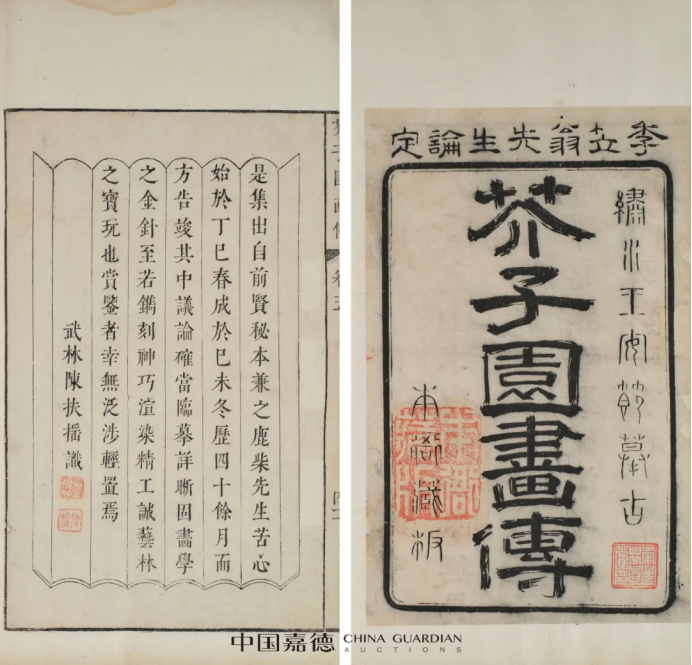 李笠翁先生論定
繡水王安節摹古
芥子園畫傳
本衙藏板
卷五
是集出自前賢秘本兼之鹿柴先生苦心
始於丁巳春成於己未冬歷四十餘月而
方告竣其中議論確當臨摹詳晰固畫學
之金針至若鐫刻神巧渲染精工誠藝林
之寶玩也賞鑒者幸無泛涉輕置焉
武林陳扶搖識
中国嘉德 CHINA GUARDIAN
AUCTIONS